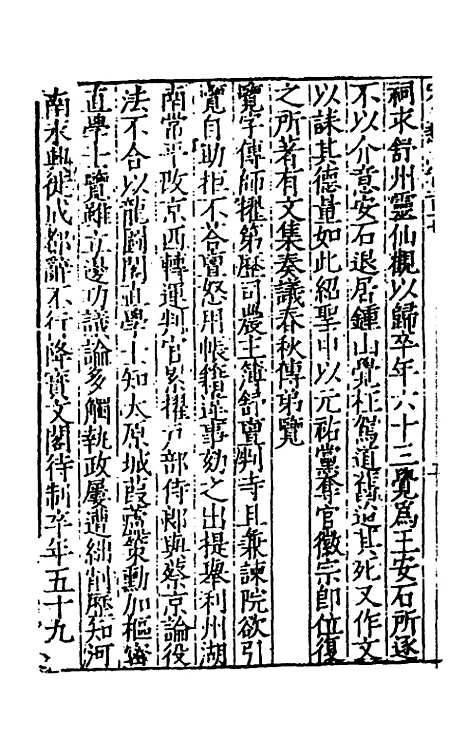 祠求舒州靈仙觀以歸卒年六十三覺爲王安石所逐
不以介意安石退居鍾山覺枉駕道舊迨其死又作文
以誄其德量如此紹聖中以元祐黨奪官徽宗卽位復
之所著有文集奏議春秋傳弟覽
覽字傳師擢第歷司農主簿舒亶判寺且兼諫院欲引
覽自助拒不荅亶怒用帳籍違事劾之出提舉利州湖
南常平改京西轉運判官累擢戶部侍郎與蔡京論役
法不合以龍圖閣直學士知太原城葭蘆策勳加樞密
直學士覽雖立邊功議論多觸執政屢遭絀削歷知河
南永興徙成都辭不行降寶文閣待制卒年五十九